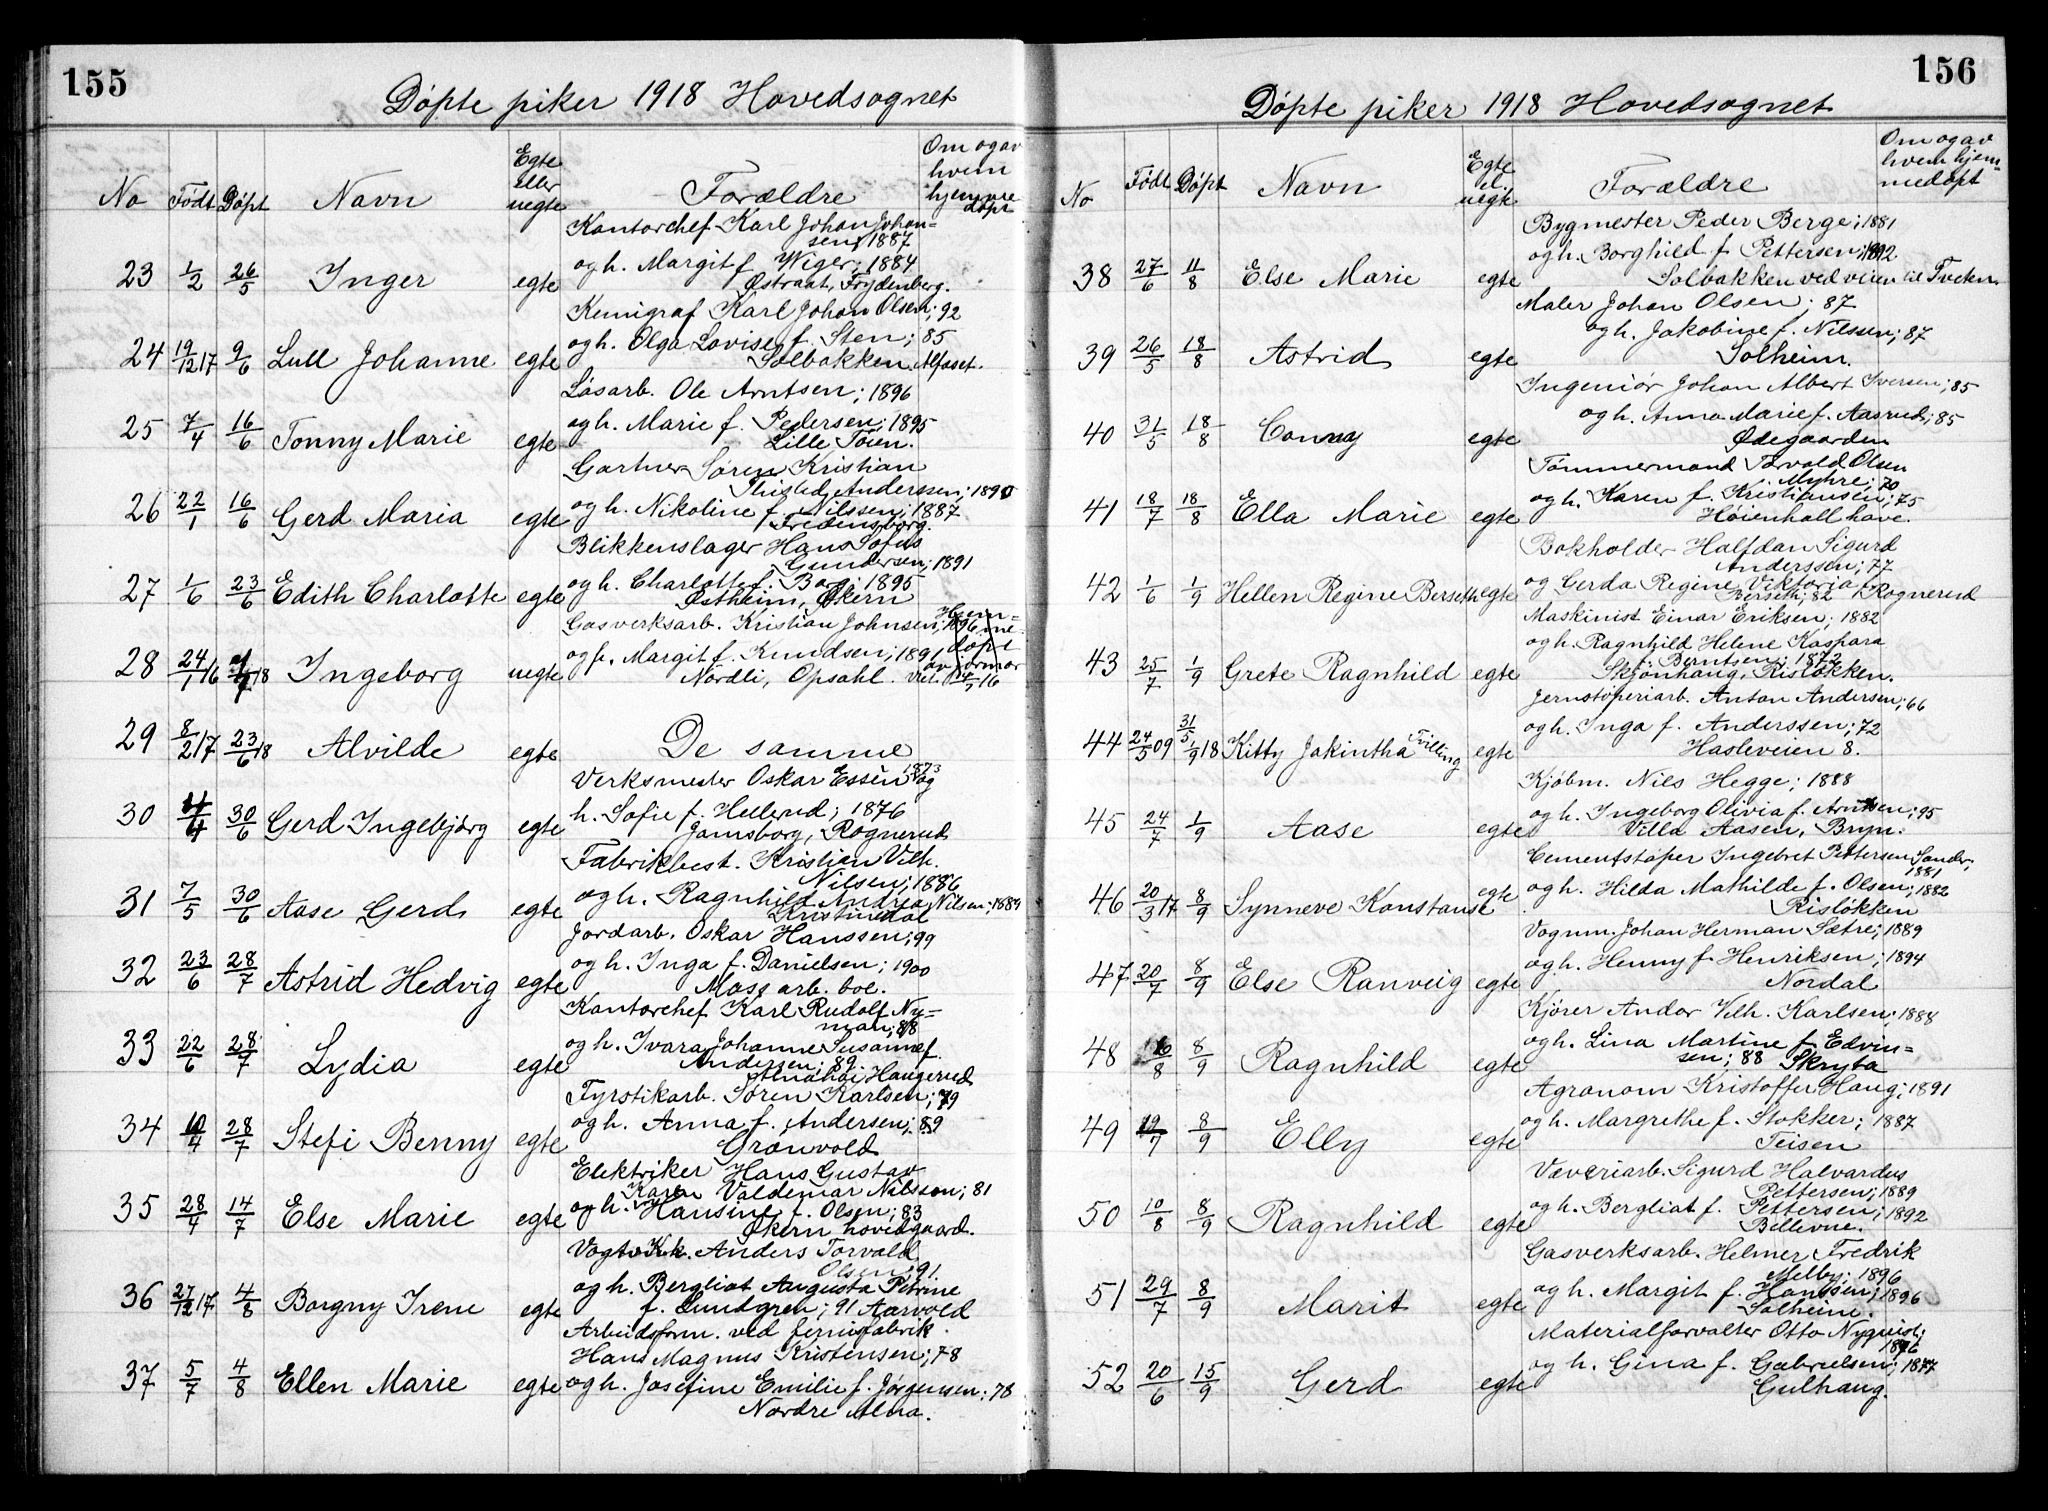 155
Døpte piker 1918 Hovedsognet
No Født Døpt Navn Egte eller uegte Forældre Om og av hvem hjemmedøpt
Kontorchef Karl Johan Johan=
sen; 1887
23 1/2 26/5 Inger egte og h. Margit f. Wiger; 1884
Østraat, Frydenberg.
Kemigraf Karl Johan Olsen; 92
og h. Olga Lovise f. Sten; 85
24 19/12 17 9/6 Lull Johanne egte Solbakken Alfaset.
Løsarb. Ole Arntsen; 1896
25 7/4 16/6 Tonny Marie egte og h. Marie f. Pedersen; 1895
Lille Tøien.
Gartner Søren Kristian
Thisted Anderssen; 1890
26 22/1 16/6 Gerd Maria egte og h. Nikoline f. Nilssen; 1887
Fredensborg.
Blikkenslager Hans Sofus
Gundersen; 1891
27 1/6 23/6 Edith Charlotte egte og h. Charlotte f. Borg; 1895
Østheim, Økern
Gasverksarb. Kristian Johnsen; 1896 Hjem=
me
døpt
28 24/1 16 18 Ingeborg uegte og h. Margit f. Knudsen; 1891 av jormor
Nordli, Opsahl. 16
29 8/2 17 23/6 18 Alvilde egte De samme
Verksmester Oskar Essén 1873 og
30 4/4 30/6 Gerd Ingebjørg egte h. Sofie f. Hellerud; 1876
Jamsborg, Rognerud
Fabrikbest. Kristian Vilh.
Nilsen; 1886
31 7/5 30/6 Aase Gerd egte og h. Ragnhild Andrea Nilsen; 1889
Kristinedal
Jordarb. Oskar Hanssen; 99
32 23/6 28/7 Astrid Hedvig egte og h. Inga f. Danielsen; 1900
Mose arb. bol.
Kontorchef Karl Rudolf Ny=
man; 88
33 22/6 28/7 Lydia egte og h. Ivara Johanne Susanne f.
Anderssen; 89.
Alnahøi Haugerud
Fyrstikarb. Søren Karlsen; 79
34 10/4 28/7 Stefi Benny egte og h. Anna f. Andersen; 89
Grønvold
Elektriker Hans Gustav
Valdemar Nilsson; 81
35 28/4 14/7 Else Marie egte og h. Karen Hansine f. Olsen; 83
Økern hovedgaard.
Vogtv.k. Anders Torvald
Olsen; 91
36 27/12 17 4/8 Borgny Irene egte og h. Bergliot Augusta Petrine
f. Lundgren; 91 Aarvold
Arbeidsform. ved fernisfabrik
Hans Magnus Kristensen; 78
37 5/7 4/8 Ellen Marie egte og h. Josefine Emilie f. Jørgensen; 78
Nordre Alna.
156
Døpte piker 1918 Hovedsognet
No Født Døpt Navn Egte el. uegte Forældre Om og av hvem hjemmedøpt
Bygmester Peder Berge; 1881
og h. Borghild f. Pettersen; 1892
38 27/6 11/8 Else Marie egte Solbakken ved veien til Tveten
Maler Johan Olsen; 87
og h. Jakobine f. Nilssen; 87
39 26/5 18/8 Astrid egte Solheim.
Ingeniør Johan Albert Iversen; 85
og h. Anna Marie f. Aasrud; 85
40 31/5 18/8 Conny egte Ødegaarden
Tømmermand Torvald Olsen
Myhre; 70
41 18/7 18/8 Ella Marie egte og h. Karen f. Kristiansen; 75
Høienhall have.
Bokholder Halfdan Sigurd
Anderssen; 77
42 1/6 1/9 Hellen Regine Berseth egte og Gerda Regine Viktoria f.
Berseth; 82 Rognerud
Maskinist Einar Eriksen; 1882
og h. Ragnhild Helene Kaspara
f. Berntsen; 1872
43 25/7 1/9 Grete Ragnhild egte Skjønhaug, Risløkken.
Jernstøperiarb. Anton Andersen; 66
og h. Inga f. Anderssen; 72
44 24/5 09 31/5 1/9 18 Kitty Jakintha Tvilling egte Hasleveien 8.
Kjøbm. Nils Hegge; 1888
og h. Ingeborg Olivia f. Arntsen; 95
45 24/7 1/9 Aase egte Villa Aasen, Bryn.
Cementstøper Ingebret Pettersen Sander;
1881
46 20/3 17 8/9 Synneve Konstanse egte og h. Hilda Mathilde f. Olsen; 1882
Risløkken
Vognm. Johan Herman Sætre; 1889
og h. Henny f. Henriksen; 1894
47 20/7 8/9 Else Ranveig egte Nordal
Kjører Andor Vilh. Karlsen; 1888
48 16/8 8/9 Ragnhild egte og h. Lina Martine f. Edvin=
sen; 88 Skryta
Agronom Kristoffer Haug; 1891
49 19/7 8/9 Elly egte og h. Margrethe f. Stokker; 1887
Teisen
Væveriarb. Sigurd Halvardus
Pettersen; 1889
50 10/8 8/9 Ragnhild egte og h. Bergliot f. Pettersen; 1892
Bellevue.
Gasverksarb. Helmer Fredrik
Melby; 1896
51 29/7 8/9 Marit egte og h. Margit f. Hanssen; 1896
Solheim.
Materialforvalter Otto Nyquist;
1876
52 20/6 15/9 Gerd egte og h. Gina f. Gabrielsen; 1877
Gulhaug.